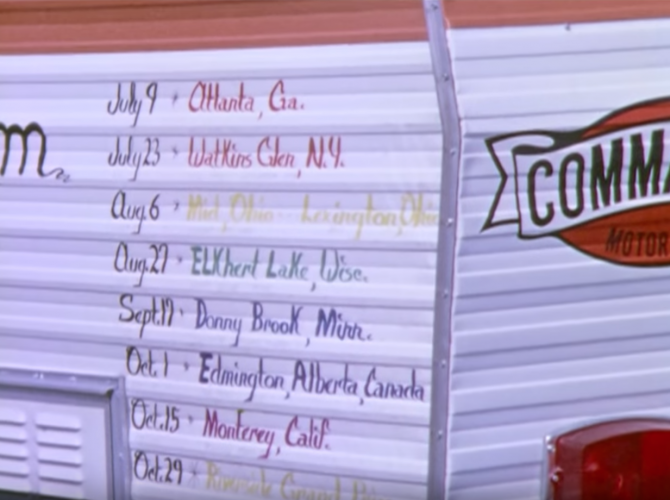 m
July 9 • Atlanta, Ga.
July 23 • Watkins Glen, N.Y.
Aug. 6 • Mid, Ohio - Lexington, Ohio
Aug. 27 • ELKhert Lake, Wisc.
Sept. 17 • Donny Brook, Minn.
Oct. 1 • Edmington, Alberta, Canada
Oct. 15 • Monterey, Calif.
Oct. 29 • Riverside Grand
COMMA
MOTOR